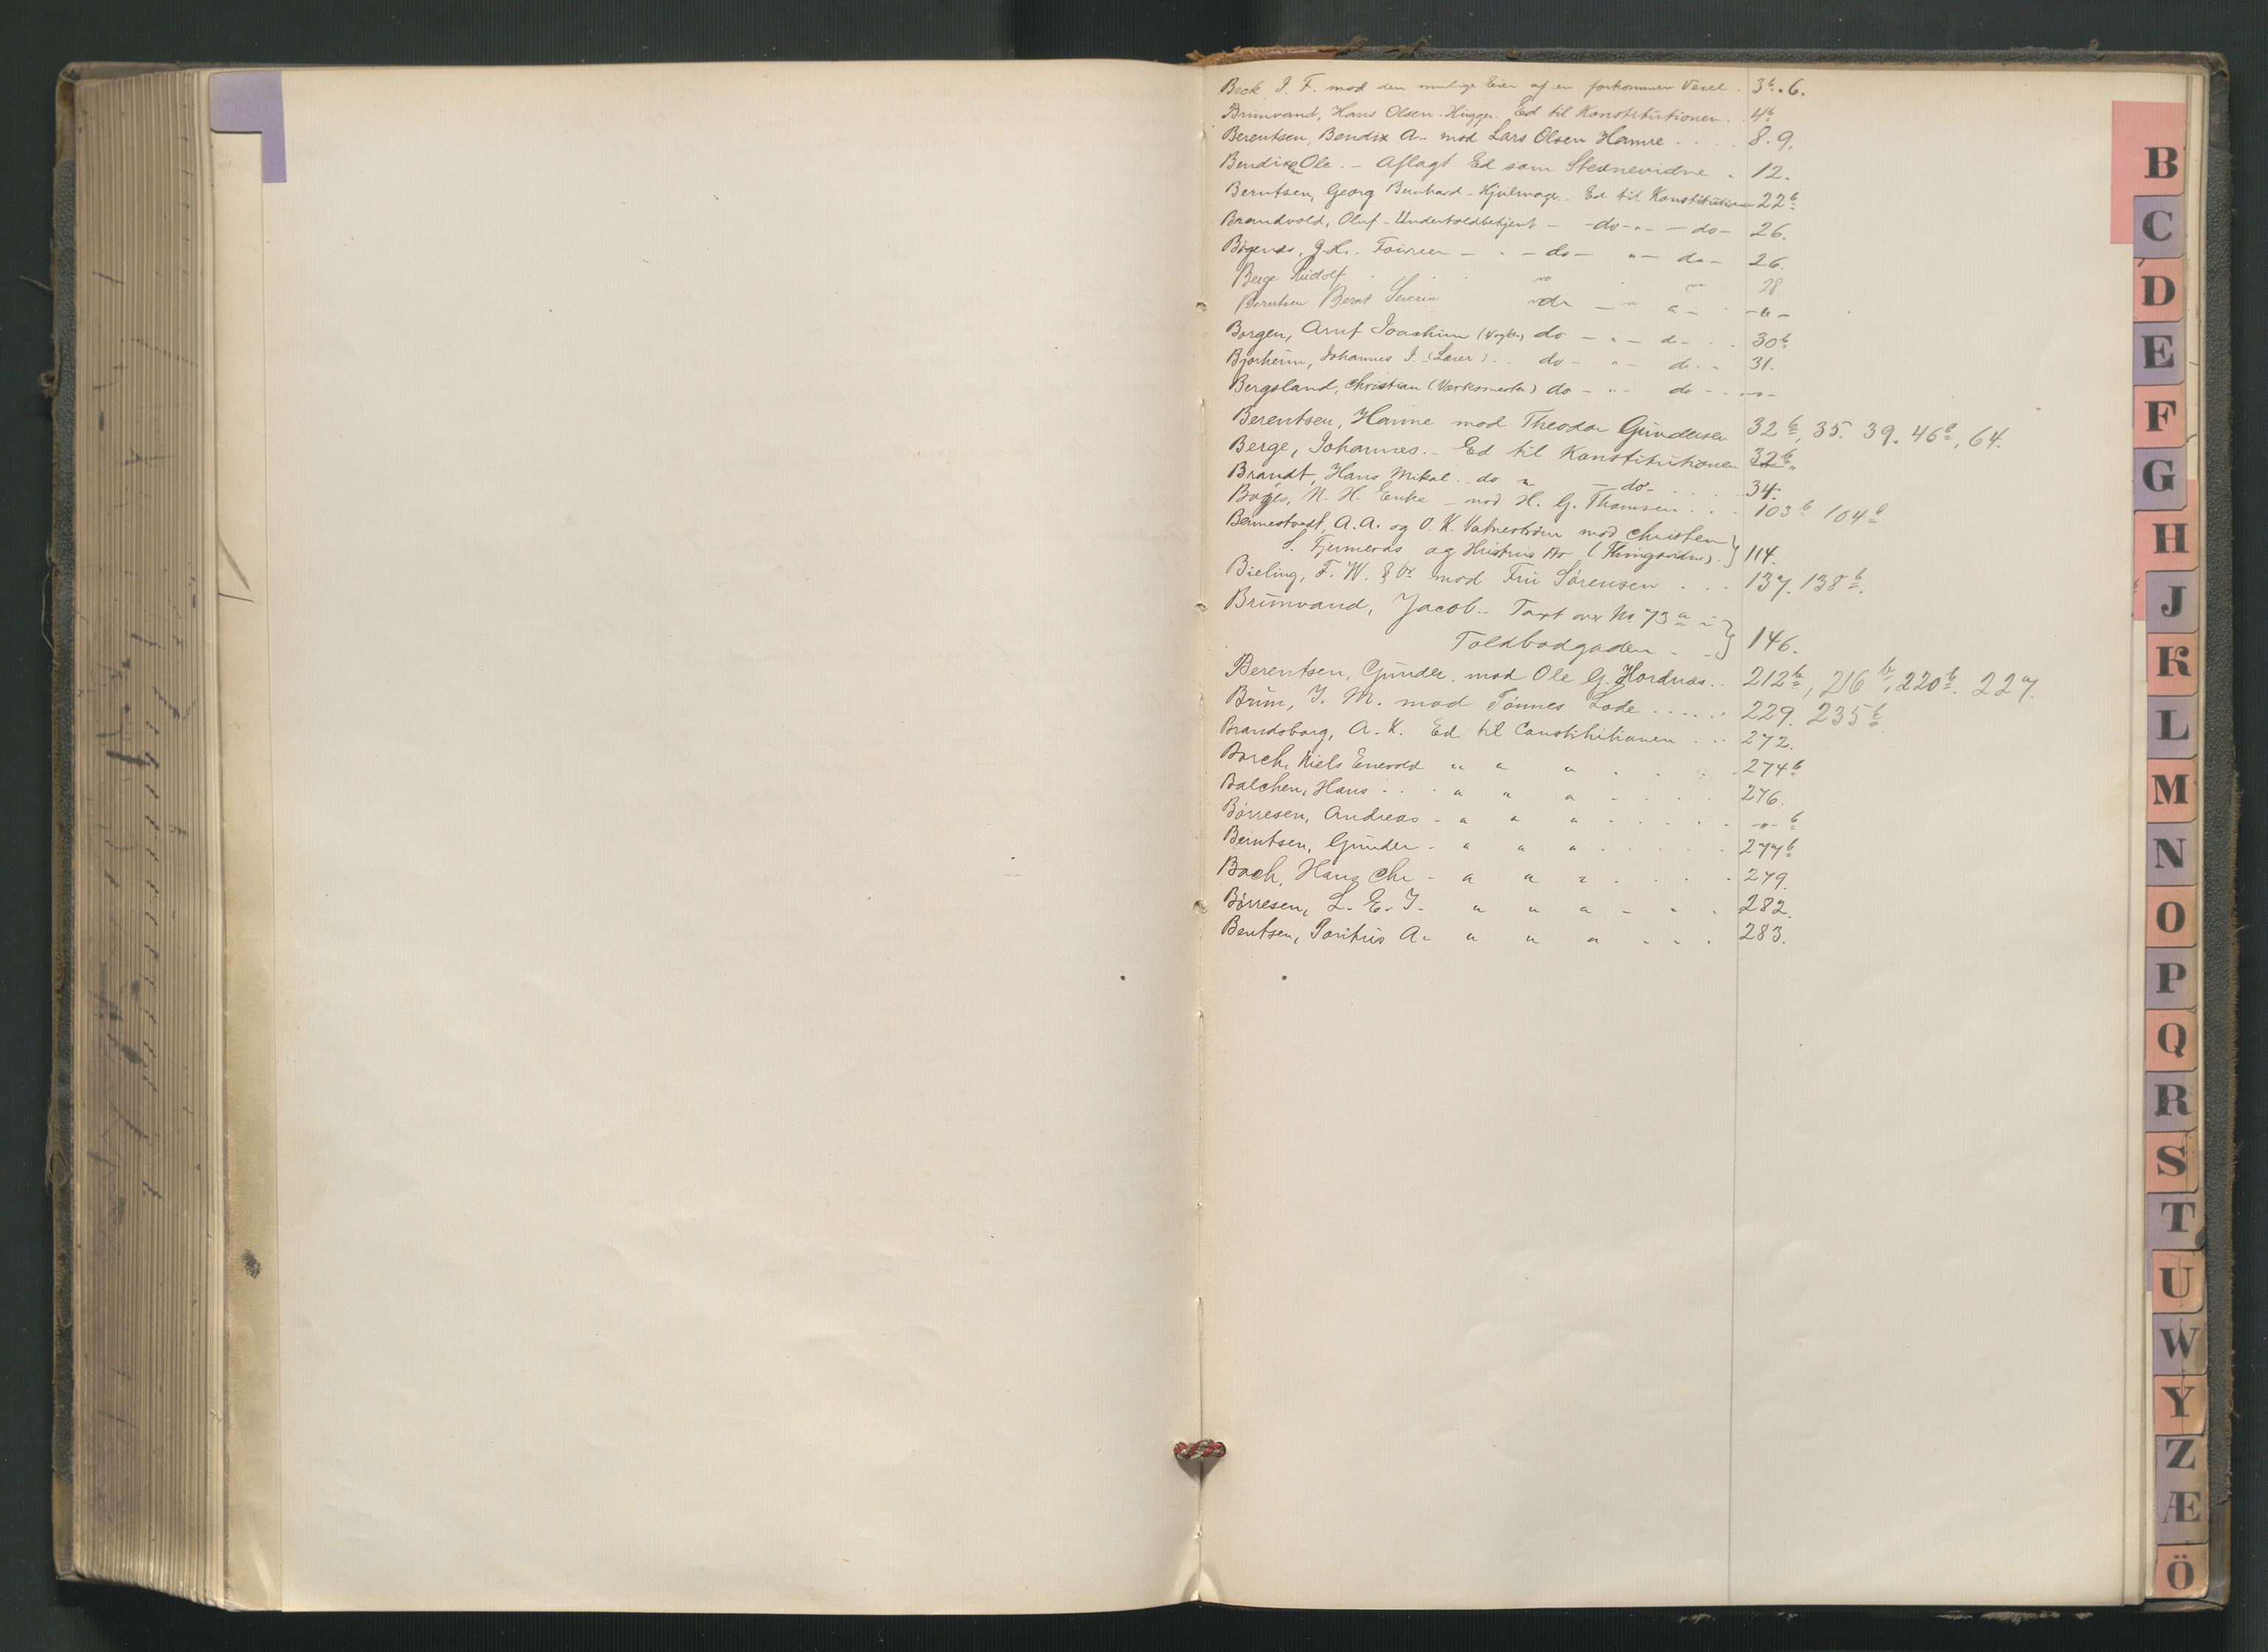 Beck, J. F. mod den mulige Eier af en forkommen Vexel . 3b. 6.
Brunvand, Hans Olsen. Hugger. Ed til Konstitutionen . . 4b
Berentsen, Bendix A.. mod Lars Olsen Hamre . . . . 8. 9.
Bendixen Ole. - Aflagt Ed som Stevnevidne . 12.
Berntsen, Georg Bernhard - Hjulmager - Ed til Konstitutionen 22b
Brandvold, Oluf - Undertoldbetjent - -do- " - do- 26.
J. H. - - . - do - " - do - 26.
Berge Rudolf 28
Berntsen Bernt Severin do - " - " - - " -
Borgen, Joachim do - " - d- . . 30b
Bjorheim, Johannes J. (Lærer) . . do - " - do . - 31.
Bergsland, Christian (Værksmester) do - " - do - . - " -
Berentsen, Hanne mod Theodor Gundersen 32b, 35. 39. 46b, 64.
Berge, Johannes. - Ed til Konstitutionen 32b
Brandt, Hans Mikal . do " - do - . . . . 34.
N. H. Enke - mod H. G. Thomsen . . . 103b 104b
A. A. og O. K. Vatnestrøm mod Christen
S. Fjermeros og Hustrus Bo (Thingsvidne) . } 114.
Bieling, F. W. & Co mod Fru Sørensen . . . 137. 138b.
Brunvand, Jacob - Taxt over No 73a i
Toldbodgaden - . } 146.
Berentsen, Gunder, mod Ole G. Hordnæs . . 212b, 216b, 220b. 227.
Brun, J. M. mod Tønnes Lode . . . . . . 229. 235b
Brandsborg, A. K. Ed til Constitutionen . . . 272.
Borch, Niels Enevold " " " . . . . 274b
Balchen, Hans . . . " " " . . . . 276.
Børresen, Andreas - " " " . . . . . - " - b
Berntsen, Gunder - " " " . . . . . 277b
Bach, Hans Chr - " " " . . . . 279.
Børresen, L. E. J. " " " - . . 282.
Bentsen, A. " " " . . . 283.
B
C
D
E
F
G
H
J
K
L
M
N
O
P
Q
R
S
T
U
W
Y
Z
Æ
Ö